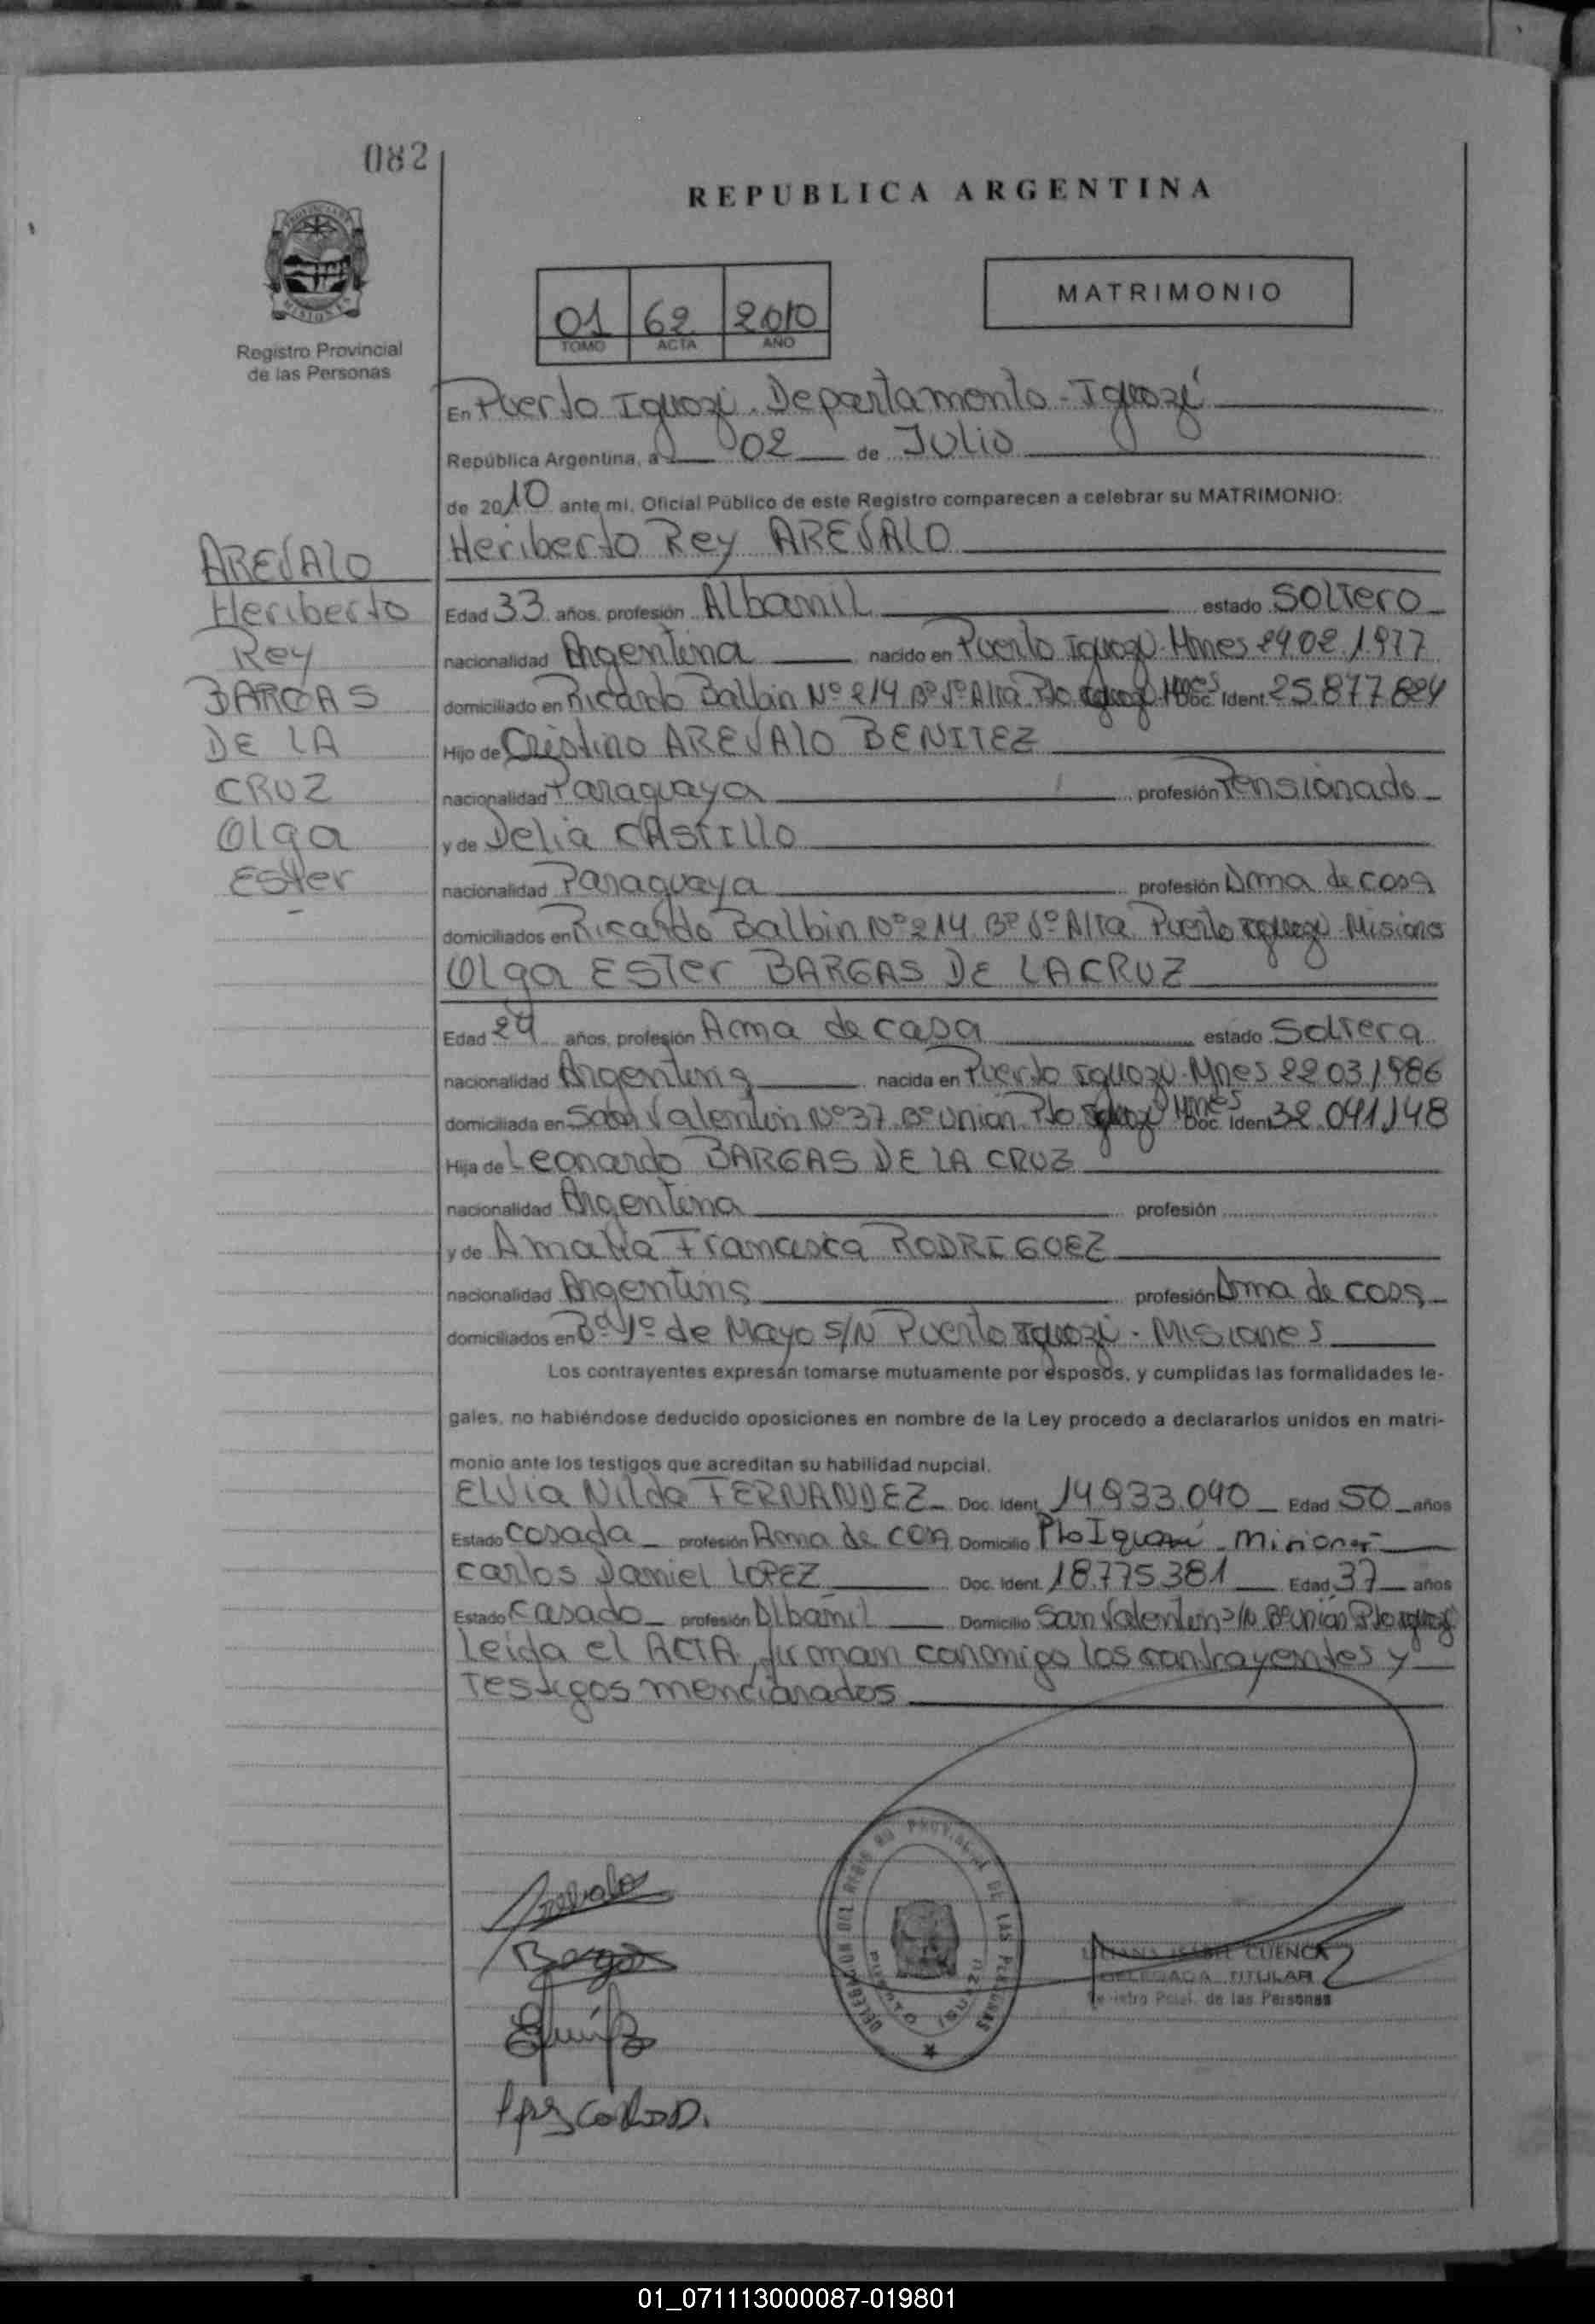 082
REPUBLICA ARGENTINA
MATRIMONIO
01 62 2010
TOMO ACTA AÑO
Registro Provincial
de las Personas
En Puerto Iguazú. Departamento - Iguazú
República Argentina, a 02 de Julio
de 2010 ante mí, Oficial Público de este Registro comparecen a celebrar su MATRIMONIO:
Heriberto Rey AREVALO
AREVALO
Heriberto
Rey
BARGAS
DE LA
CRUZ
Olga
Ester
Edad 33 años, profesión Albañil estado Soltero
nacionalidad Argentina nacido en Puerto Iguazú Mnes 24.02.1977
domiciliado en Ricardo Balbin Nº 214 Bº Vº Alta Pto Iguazú Mnes Doc. Ident. 25.877.824
Hijo de Cristino AREVALO BENITEZ
nacionalidad Paraguaya profesión Pensionado
y de Delia CASTILLO
nacionalidad Paraguaya profesión Ama de casa
domiciliados en Ricardo Balbin Nº 214 Bº Vº Alta Puerto Iguazú Misiones
Olga ESTer BARGAS DE LA CRUZ
Edad 24 años, profesión Ama de casa estado Soltera
nacionalidad Argentina nacida en Puerto Iguazú - Mnes 22.03.1986
domiciliada en San Valentin Nº 37 Bº Union Pto Iguazú Mnes Doc. Ident. 32.041.148
Hija de Leonardo BARGAS DE LA CRUZ
nacionalidad Argentina profesión
y de Amalia Francisca RODRIGUEZ
nacionalidad Argentina profesión Ama de casa
domiciliados en Bº 1º de Mayo S/N Puerto Iguazú - Misiones
Los contrayentes expresan tomarse mutuamente por esposos, y cumplidas las formalidades le-
gales, no habiéndose deducido oposiciones en nombre de la Ley procedo a declararlos unidos en matri-
monio ante los testigos que acreditan su habilidad nupcial.
Elvia Nilda FERNANDEZ Doc. Ident. 14.933.040 Edad 50 años
Estado Casada profesión Ama de casa Domicilio Pto Iguazú - Misiones
Carlos Daniel LOPEZ Doc. Ident. 18.775.381 Edad 37 años
Estado Casado profesión Albañil Domicilio San Valentin S/N Bº Unión Pto Iguazú
Leida el ACTA, firman conmigo los contrayentes y
Testigos mencionados
DELEGACION DEL REGISTRO PROVINCIAL DE LAS PERSONAS
PUERTO IGUAZU
LILIANA ISABEL CUENCA
DELEGADA TITULAR
Registro Pcial. de las Personas
01_071113000087-019801